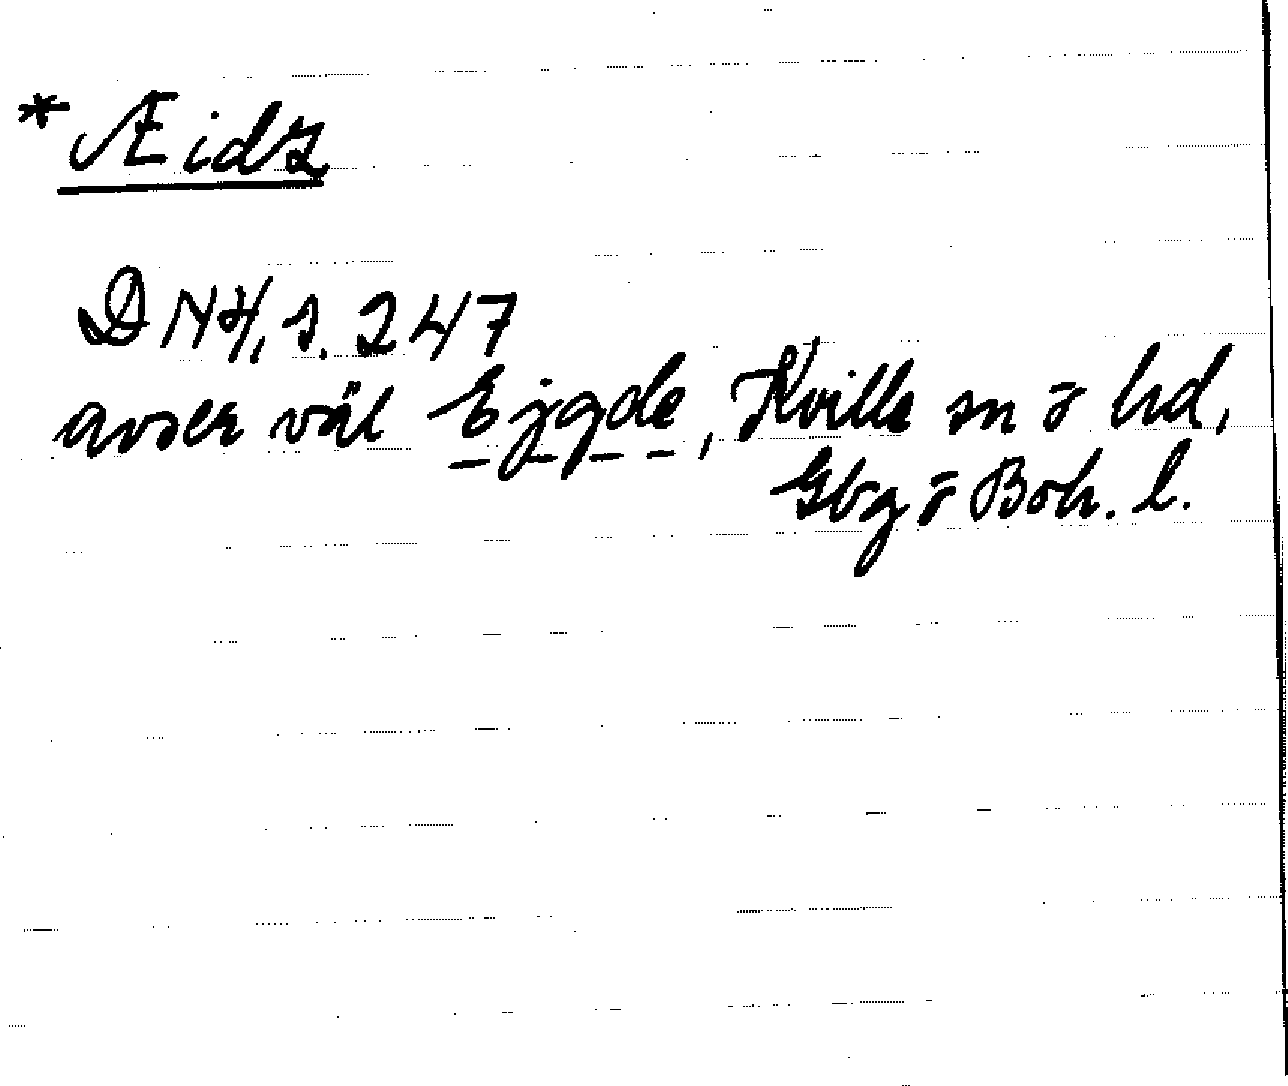 *Æidz
DN 4, s. 247
avser väl Ejgde, Kville sn o hd,
Gbg o Boh. l.